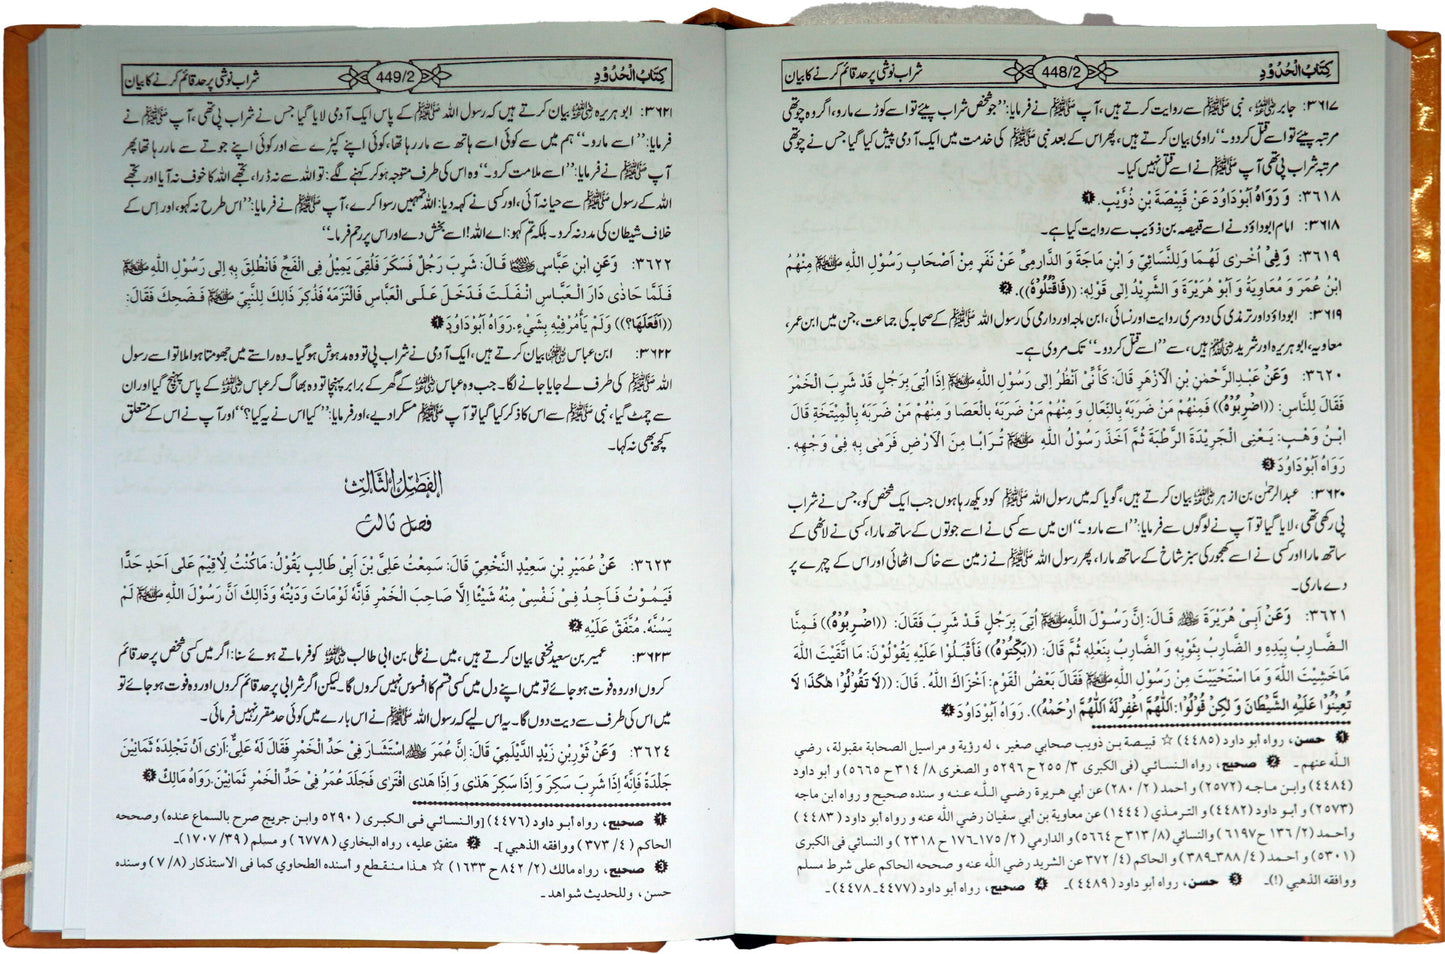 كِتَابُ الْحُدُوْدِ 448/2 شراب نوشی پر حد قائم کرنے کا بیان
۳۶۱۷: جابر رضی اللہ عنہ، نبی ﷺ سے روایت کرتے ہیں، آپ ﷺ نے فرمایا: ’’جو شخص شراب پیئے تو اسے کوڑے مارو، اگر وہ چوتھی
مرتبہ پیئے تو اسے قتل کر دو۔‘‘ راوی بیان کرتے ہیں، پھر اس کے بعد نبی ﷺ کی خدمت میں ایک آدمی پیش کیا گیا جس نے چوتھی
مرتبہ شراب پی تھی آپ ﷺ نے اسے قتل نہیں کیا۔
٣٦١٨: وَ رَوَاهُ اَبُوْدَاوُدَ عَنْ قَبِيْصَةَ بْنِ ذُؤَيْبٍ. ❶
۳۶۱۸: امام ابوداؤد نے اسے قبیصہ بن ذؤیب سے روایت کیا ہے۔
٣٦١٩: وَ فِيْ اُخْرٰى لَهُمَا وَلِلنَّسَائِيِّ وَ ابْنِ مَاجَةَ وَ الدَّارِمِيِّ عَنْ نَفَرٍ مِنْ اَصْحَابِ رَسُوْلِ اللّٰهِ ﷺ مِنْهُمُ
ابْنُ عُمَرَ وَ مُعَاوِيَةُ وَ اَبُوْ هُرَيْرَةَ وَ الشَّرِيْدُ اِلٰى قَوْلِهٖ: ((فَاقْتُلُوْهُ)). ❷
۳۶۱۹: ابوداؤد اور ترمذی کی دوسری روایت اور نسائی، ابن ماجہ اور دارمی کی رسول اللہ ﷺ کے صحابہ کی جماعت، جن میں ابن عمر،
معاویہ، ابو ہریرہ اور شرید رضی اللہ عنہم ہیں، سے ’’اسے قتل کر دو۔‘‘ تک مروی ہے۔
٣٦٢٠: وَعَنْ عَبْدِالرَّحْمٰنِ بْنِ الْاَزْهَرِ قَالَ: كَاَنِّيْ اَنْظُرُ اِلٰى رَسُوْلِ اللّٰهِ ﷺ اِذَا اُتِيَ بِرَجُلٍ قَدْ شَرِبَ الْخَمْرَ
فَقَالَ لِلنَّاسِ: ((اضْرِبُوْهُ)) فَمِنْهُمْ مَنْ ضَرَبَهٗ بِالنِّعَالِ وَ مِنْهُمْ مَنْ ضَرَبَهٗ بِالْعَصَا وَ مِنْهُمْ مَنْ ضَرَبَهٗ بِالْمِيْتَخَةِ قَالَ
ابْنُ وَهْبٍ: يَعْنِى الْجَرِيْدَةَ الرَّطْبَةَ ثُمَّ اَخَذَ رَسُوْلُ اللّٰهِ ﷺ تُرَابًا مِنَ الْاَرْضِ فَرَمٰى بِهٖ فِىْ وَجْهِهٖ .
رَوَاهُ اَبُوْدَاوُدَ ❸
۳۶۲۰: عبدالرحمٰن بن ازہر رضی اللہ عنہ بیان کرتے ہیں، گویا کہ میں رسول اللہ ﷺ کو دیکھ رہا ہوں جب ایک شخص کو، جس نے شراب
پی رکھی تھی، لایا گیا تو آپ نے لوگوں سے فرمایا: ’’اسے مارو۔‘‘ ان میں سے کسی نے اسے جوتوں کے ساتھ مارا، کسی نے لاٹھی کے
ساتھ مارا اور کسی نے اسے کھجور کی سبز شاخ کے ساتھ مارا، پھر رسول اللہ ﷺ نے زمین سے خاک اٹھائی اور اس کے چہرے پر
دے ماری۔
٣٦٢١: وَعَنْ اَبِيْ هُرَيْرَةَ رضی اللہ عنہ قَالَ: اِنَّ رَسُوْلَ اللّٰهِ ﷺ اُتِيَ بِرَجُلٍ قَدْ شَرِبَ فَقَالَ: ((اضْرِبُوْهُ)) فَمِنَّا
الضَّارِبُ بِيَدِهٖ وَ الضَّارِبُ بِثَوْبِهٖ وَ الضَّارِبُ بِنَعْلِهٖ ثُمَّ قَالَ: ((بَكِّتُوْهُ)) فَاَقْبَلُوْا عَلَيْهِ يَقُوْلُوْنَ: مَا اتَّقَيْتَ اللّٰهَ
مَاخَشِيْتَ اللّٰهَ وَ مَا اسْتَحْيَيْتَ مِنْ رَسُوْلِ اللّٰهِ ﷺ فَقَالَ بَعْضُ الْقَوْمِ: اَخْزَاكَ اللّٰهُ. قَالَ: ((لَا تَقُوْلُوْا هٰكَذَا لَا
تُعِيْنُوْا عَلَيْهِ الشَّيْطَانَ وَ لٰكِنْ قُوْلُوْا: اَللّٰهُمَّ اغْفِرْلَهٗ اَللّٰهُمَّ ارْحَمْهُ)). رَوَاهُ اَبُوْدَاوُدَ ❹
❶ حسن، رواه أبو داود (٤٤٨٥) ☆ قبيصة بن ذويب صحابي صغير ، له رؤية و مراسيل الصحابة مقبولة ، رضي
الله عنهم ـ ❷ صحيح، رواه النسائي (في الكبرى ٣/ ٢٥٥ ح ٥٢٩٦ و الصغرى ٨/ ٣١٤ ح ٥٦٦٥) و أبو داود
(٤٤٨٤) وابن ماجه (٢٥٧٢) و أحمد (٢/ ٢٨٠) عن أبي هريرة رضي الله عنه و سنده صحيح و رواه ابن ماجه
(٢٥٧٣) و أبو داود (٤٤٨٢) و الترمذي (١٤٤٤) عن معاوية بن أبي سفيان رضي الله عنه و أبو داود (٤٤٨٣)
وأحمد (٢/ ١٣٦ ح ٦١٩٧) والنسائي (٨/ ٣١٣ ح ٥٦٦٤) و الدارمي (٢/ ١٧٥ـ١٧٦ ح ٢٣١٨) و النسائي في الكبرى
(٥٣٠١) و أحمد (٤/ ٣٨٨ـ٣٨٩) والحاكم (٤/ ٣٧٢ عن الشريد رضي الله عنه و صححه الحاكم على شرط مسلم
ووافقه الذهبي (!)ـ ❸ حسن، رواه أبو داود (٤٤٨٩)ـ ❹ صحيح، رواه أبو داود (٤٤٧٧ـ٤٤٧٨)ـ
كِتَابُ الْحُدُوْدِ 449/2 شراب نوشی پر حد قائم کرنے کا بیان
۳۶۲۱: ابو ہریرہ رضی اللہ عنہ بیان کرتے ہیں کہ رسول اللہ ﷺ کے پاس ایک آدمی لایا گیا جس نے شراب پی تھی، آپ ﷺ نے
فرمایا: ’’اسے مارو۔‘‘ ہم میں سے کوئی اسے ہاتھ سے مار رہا تھا، کوئی اپنے کپڑے سے اور کوئی اپنے جوتے سے مار رہا تھا پھر
آپ ﷺ نے فرمایا: ’’اسے ملامت کرو۔‘‘ وہ اس کی طرف متوجہ ہو کر کہنے لگے: تو اللہ سے نہ ڈرا، تجھے اللہ کا خوف نہ آیا اور تجھے
اللہ کے رسول ﷺ سے حیا نہ آئی، اور کسی نے کہہ دیا: اللہ تمہیں رسوا کرے، آپ ﷺ نے فرمایا: ’’اس طرح نہ کہو، اور اس کے
خلاف شیطان کی مدد نہ کرو۔ بلکہ تم کہو: اے اللہ! اسے بخش دے اور اس پر رحم فرما۔‘‘
٣٦٢٢: وَعَنِ ابْنِ عَبَّاسٍ رضی اللہ عنہما قَالَ: شَرِبَ رَجُلٌ فَسَكَرَ فَلُقِيَ يَمِيْلُ فِى الْفَجِّ فَانْطُلِقَ بِهٖ اِلٰى رَسُوْلِ اللّٰهِ ﷺ
فَلَمَّا حَاذٰى دَارَ الْعَبَّاسِ انْفَلَتَ فَدَخَلَ عَلَى الْعَبَّاسِ فَالْتَزَمَهٗ فَذُكِرَ ذَالِكَ لِلنَّبِيِّ ﷺ فَضَحِكَ فَقَالَ:
((اَفَعَلَهَا؟)) وَلَمْ يَأْمُرْ فِيْهِ بِشَيْءٍ. رَوَاهُ اَبُوْدَاوُدَ ❶
۳۶۲۲: ابن عباس رضی اللہ عنہما بیان کرتے ہیں، ایک آدمی نے شراب پی تو وہ مدہوش ہو گیا۔ وہ راستے میں جھومتا ہوا ملا تو اسے رسول
اللہ ﷺ کی طرف لے جایا جانے لگا۔ جب وہ عباس رضی اللہ عنہ کے گھر کے برابر پہنچا تو وہ بھاگ کر عباس رضی اللہ عنہ کے پاس پہنچ گیا اور ان
سے چمٹ گیا، نبی ﷺ سے اس کا ذکر کیا گیا تو آپ ﷺ مسکرا دیے، اور فرمایا: ’’کیا اس نے یہ کیا؟‘‘ اور آپ نے اس کے متعلق
کچھ بھی نہ کہا۔
الفَصْلُ الثَّالِثُ
فصل ثالث
٣٦٢٣: عَنْ عُمَيْرِ بْنِ سَعِيْدِ النَّخْعِيِّ قَالَ: سَمِعْتُ عَلِيَّ بْنَ اَبِيْ طَالِبٍ يَقُوْلُ: مَاكُنْتُ لِاُقِيْمَ عَلٰى اَحَدٍ حَدًّا
فَيَمُوْتُ فَاَجِدُ فِىْ نَفْسِىْ مِنْهُ شَيْئًا اِلَّا صَاحِبَ الْخَمْرِ فَاِنَّهٗ لَوْمَاتَ وَدَيْتُهٗ وَذَالِكَ اَنَّ رَسُوْلَ اللّٰهِ ﷺ لَمْ
يَسُنَّهٗ. مُتَّفَقٌ عَلَيْهِ ❷
۳۶۲۳: عمیر بن سعید نخعی بیان کرتے ہیں، میں نے علی بن ابی طالب رضی اللہ عنہ کو فرماتے ہوئے سنا: اگر میں کسی شخص پر حد قائم
کروں اور وہ فوت ہو جائے تو میں اپنے دل میں کسی قسم کا افسوس نہیں کروں گا۔ لیکن اگر شرابی پر حد قائم کروں اور وہ فوت ہو جائے تو
میں اس کی طرف سے دیت دوں گا۔ یہ اس لیے کہ رسول اللہ ﷺ نے اس بارے میں کوئی حد مقرر نہیں فرمائی۔
٣٦٢٤: وَعَنْ ثَوْرِبْنِ زَيْدِ الدَّيْلَمِيِّ قَالَ: اِنَّ عُمَرَ رضی اللہ عنہ اسْتَشَارَ فِيْ حَدِّ الْخَمْرِ فَقَالَ لَهٗ عَلِيٌّ: اَرٰى اَنْ تَجْلِدَهٗ ثَمَانِيْنَ
جَلْدَةً فَاِنَّهٗ اِذَا شَرِبَ سَكِرَ وَ اِذَا سَكِرَ هَذٰى وَ اِذَا هَذٰى افْتَرٰى فَجَلَدَ عُمَرُ فِيْ حَدِّ الْخَمْرِ ثَمَانِيْنَ. رَوَاهُ مَالِكٌ ❸
❶ صحيح، رواه أبو داود (٤٤٧٦) [والنسائي في الكبرى (٥٢٩٠ وابن جريج صرح بالسماع عنده) وصححه
الحاكم (٤/ ٣٧٣) ووافقه الذهبي ]ـ ❷ متفق عليه، رواه البخاري (٦٧٧٨) و مسلم (٣٩/ ١٧٠٧)ـ
❸ صحيح، رواه مالك (٢/ ٨٤٢ ح ١٦٣٣) ☆ هذا منقطع و أسنده الطحاوي كما في الاستذكار (٨/ ٧) وسنده
حسن، وللحديث شواهد ـ